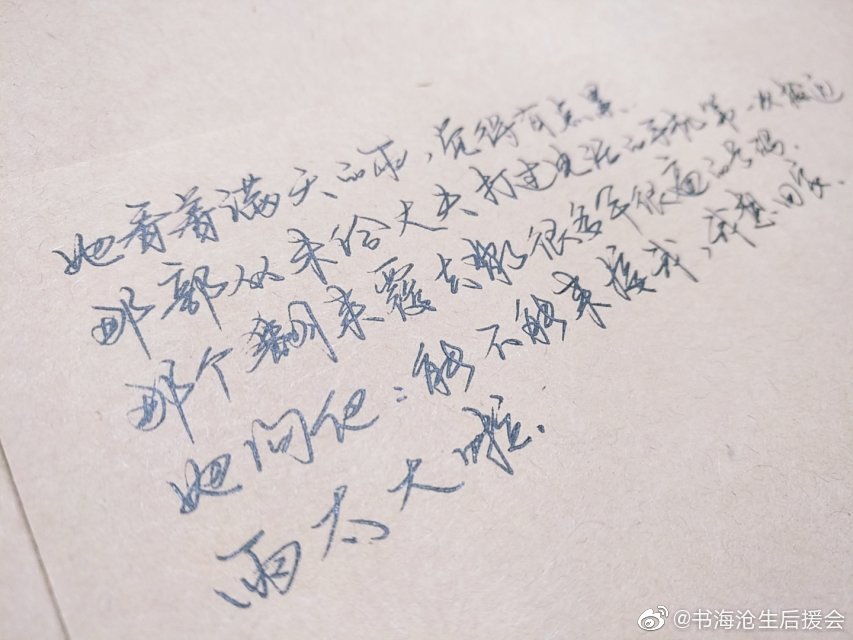 她看着满天的雨，觉得有点累.
那部从未给丈夫打过电话的手机第一次拨过
那个翻来覆去那很多年很遍的号码.
她问他：能不能来接我，我想回家.
雨太大啦.
@书海沧生后援会